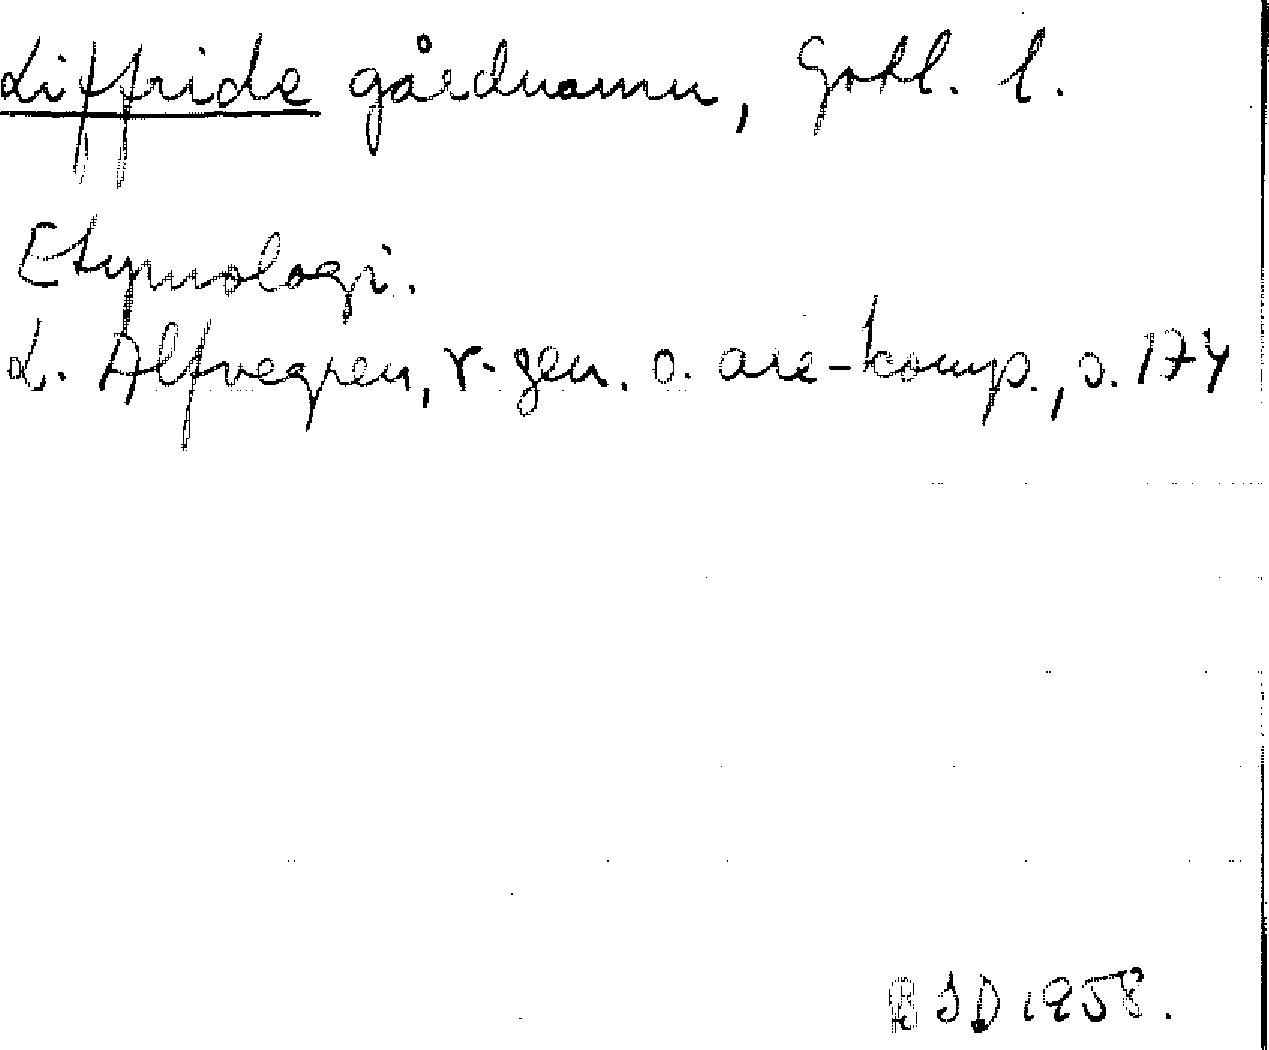 Liffride gårdnamn, Gotl. l.
Etymologi.
L. Alfvegren, r-gen. o. are-komp., s. 174
BSD 1958.